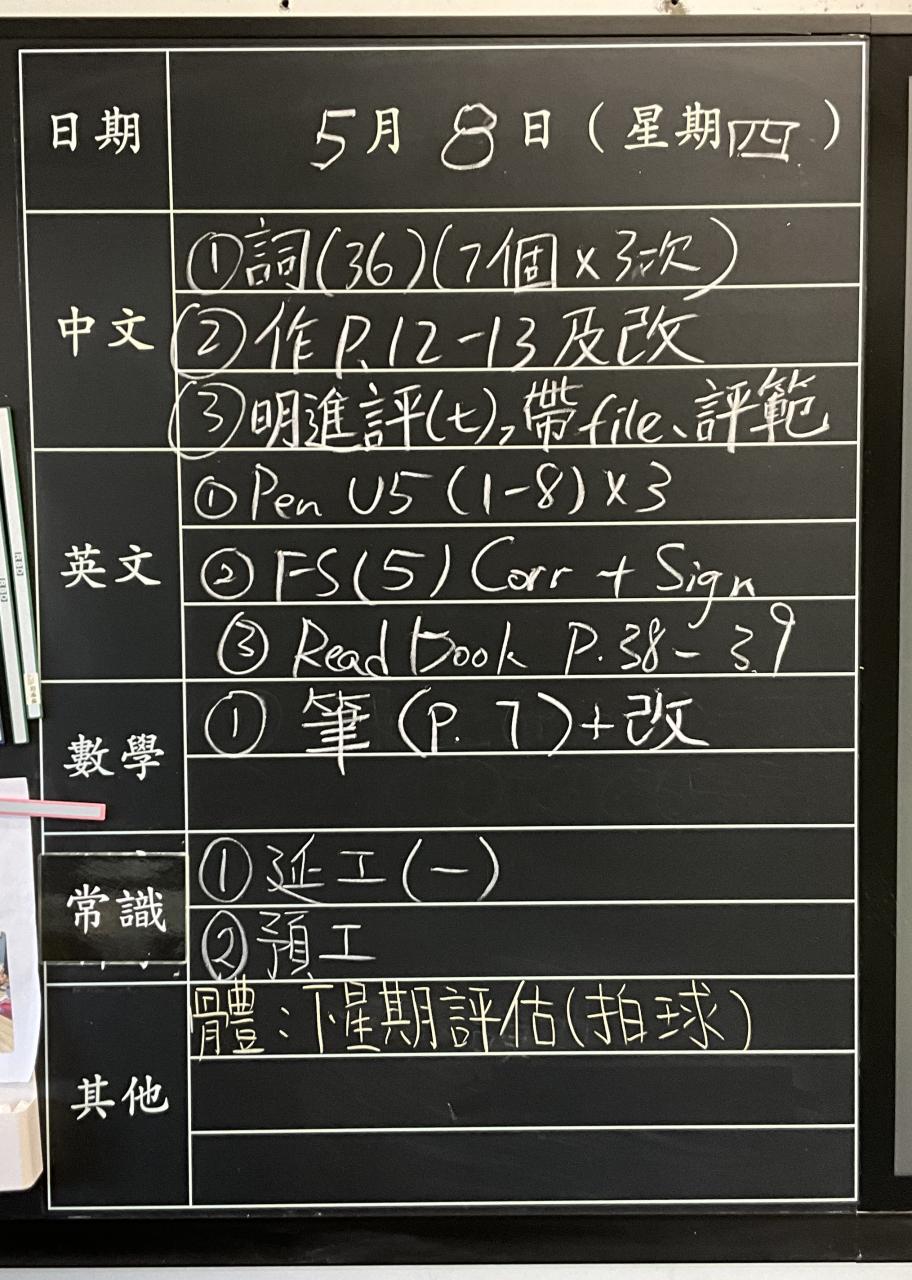 日期 5月8日(星期四)
中文 ①詞(36)(7個×3次)
②作P.12-13及改
③明進評(七),帶file、評範
英文 ①Pen U5 (1-8)×3
②FS(5) Corr + Sign
③Read book P.38-39
數學 ①筆(P.7)+改
常識 ①延工(一)
②預工
其他 體:下星期評估(拍球)